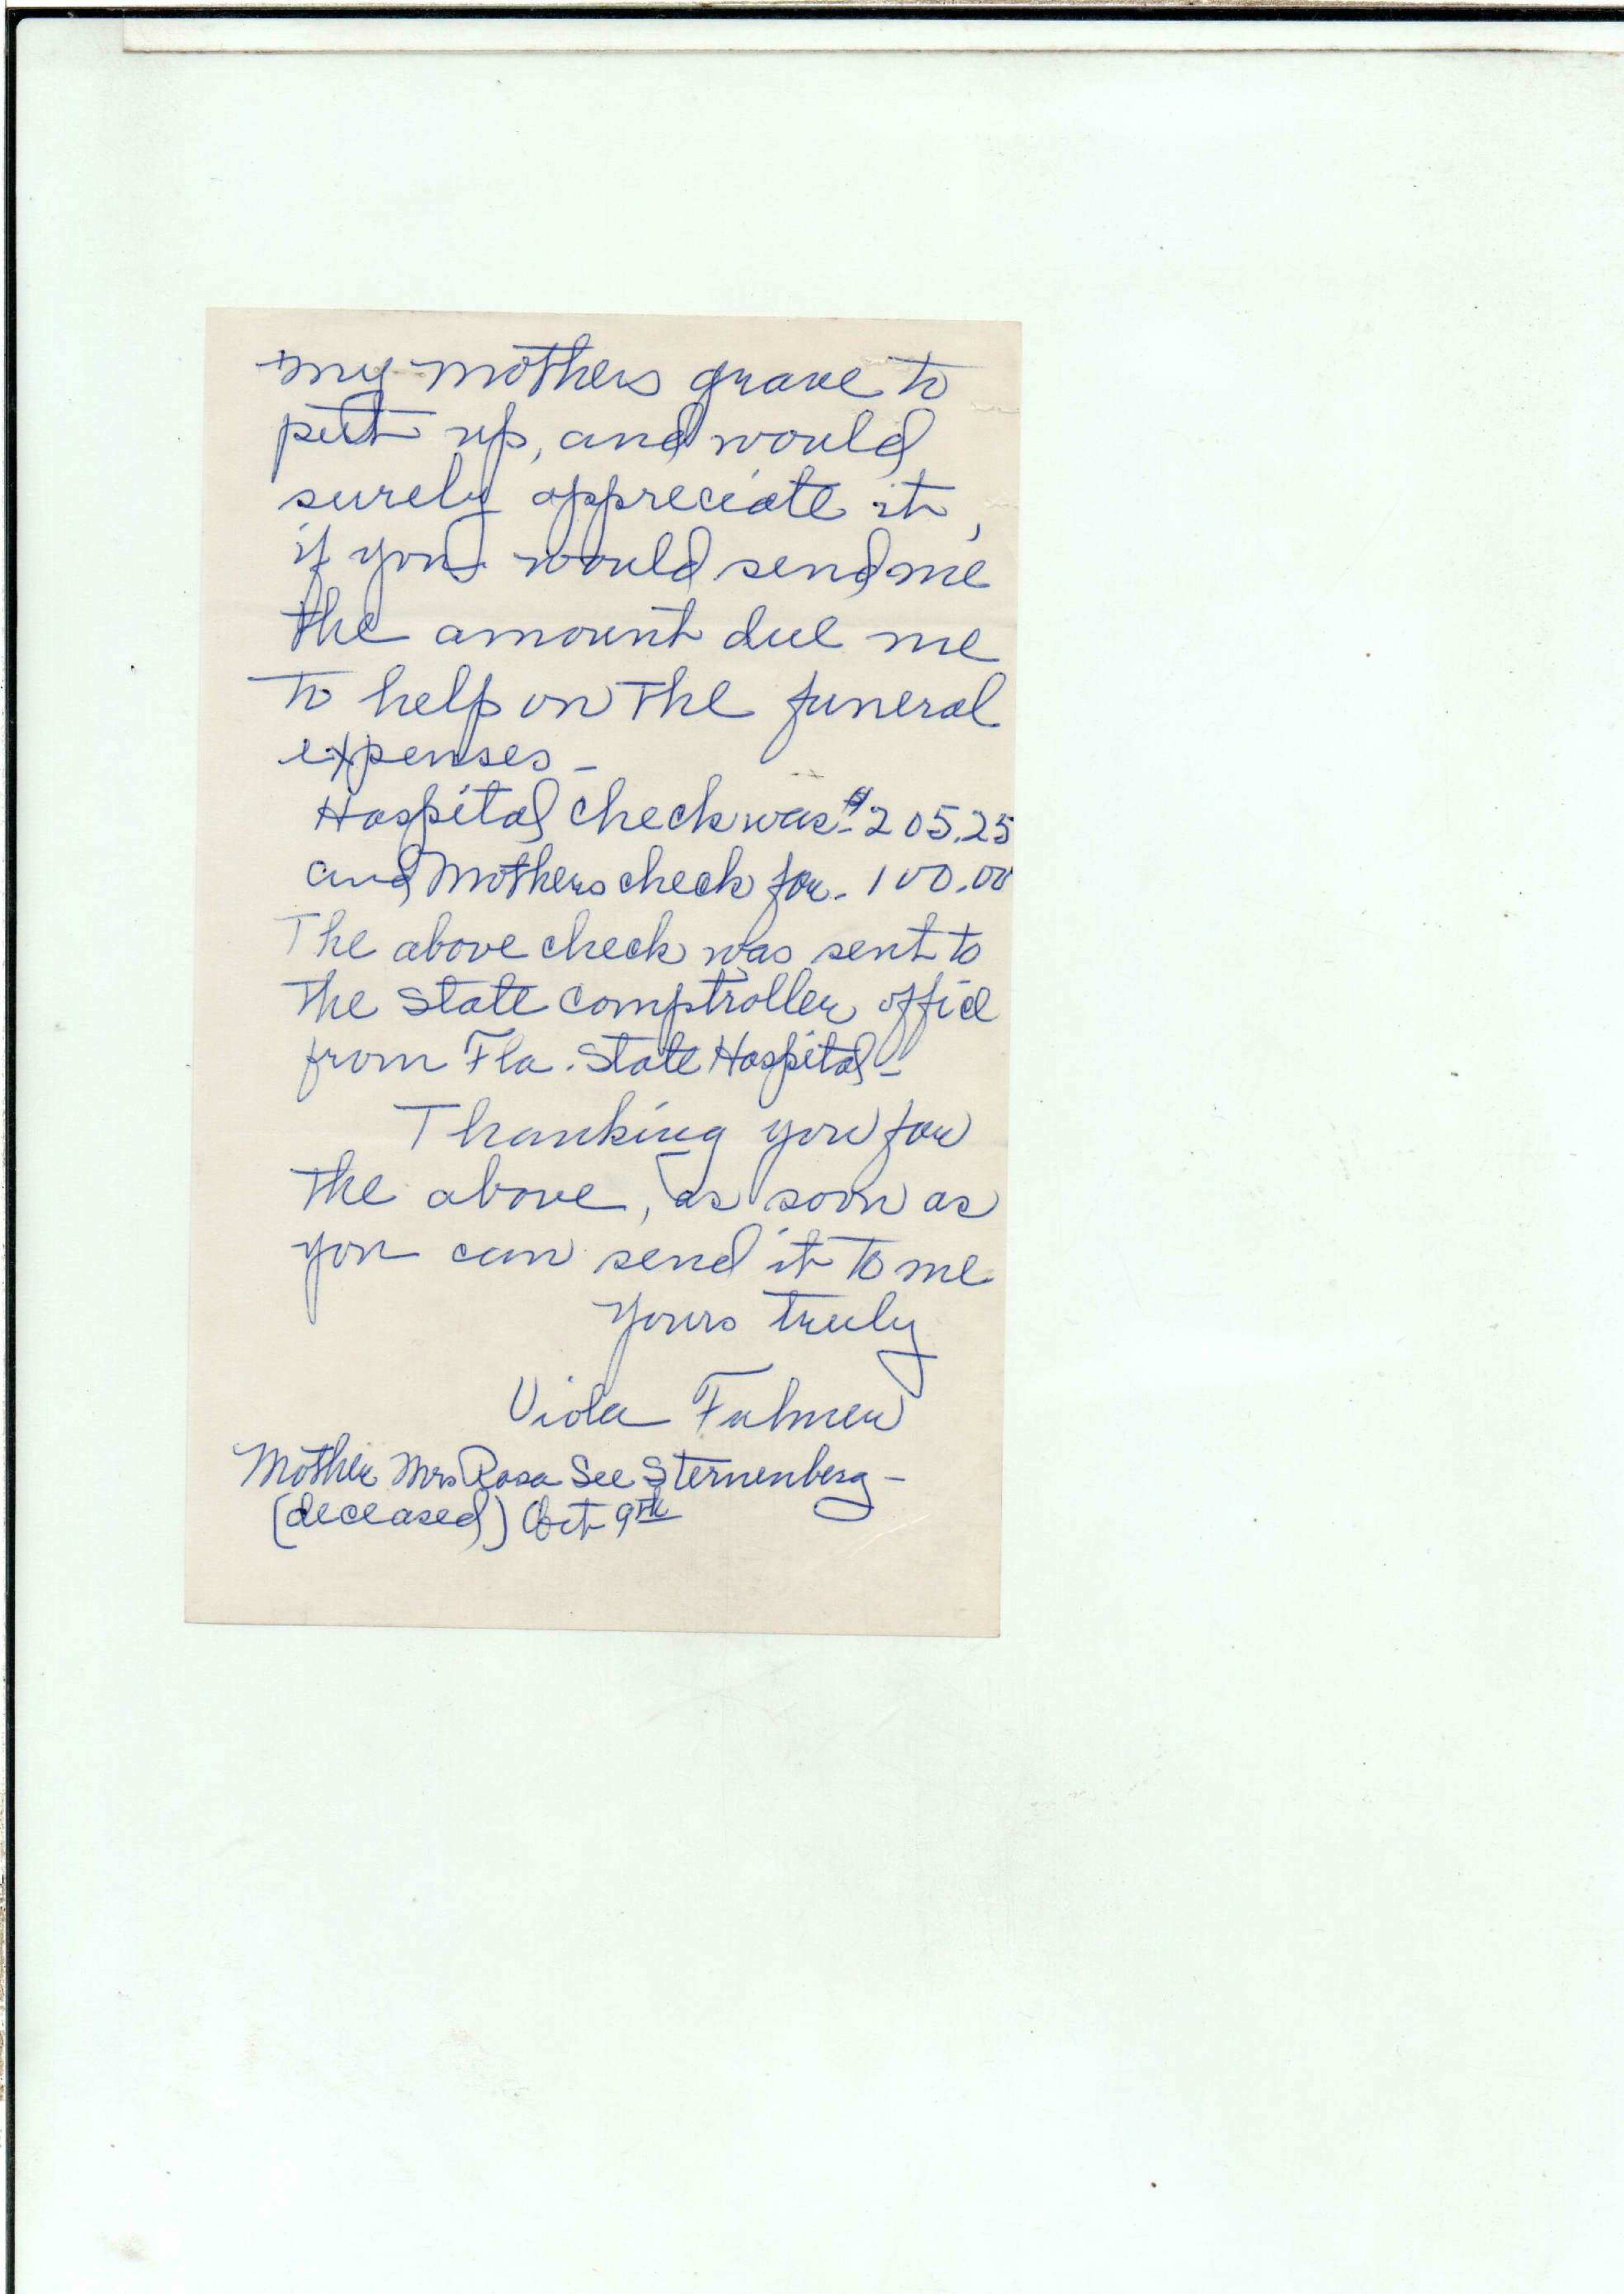 my mothers grave to
put up, and would
surely appreciate it,
if you would send me
the amount due me
to help on the funeral
expenses -
Hospital check was - $205.25
and Mothers check for - 100.00
The above check was sent to
the State Comptroller office
from Fla. State Hospital -
Thanking you for
the above, as soon as
you can send it to me
Yours truly
Viola Fulmer
Mother Mrs Rosa See Sternenberg -
(deceased) Oct 9th